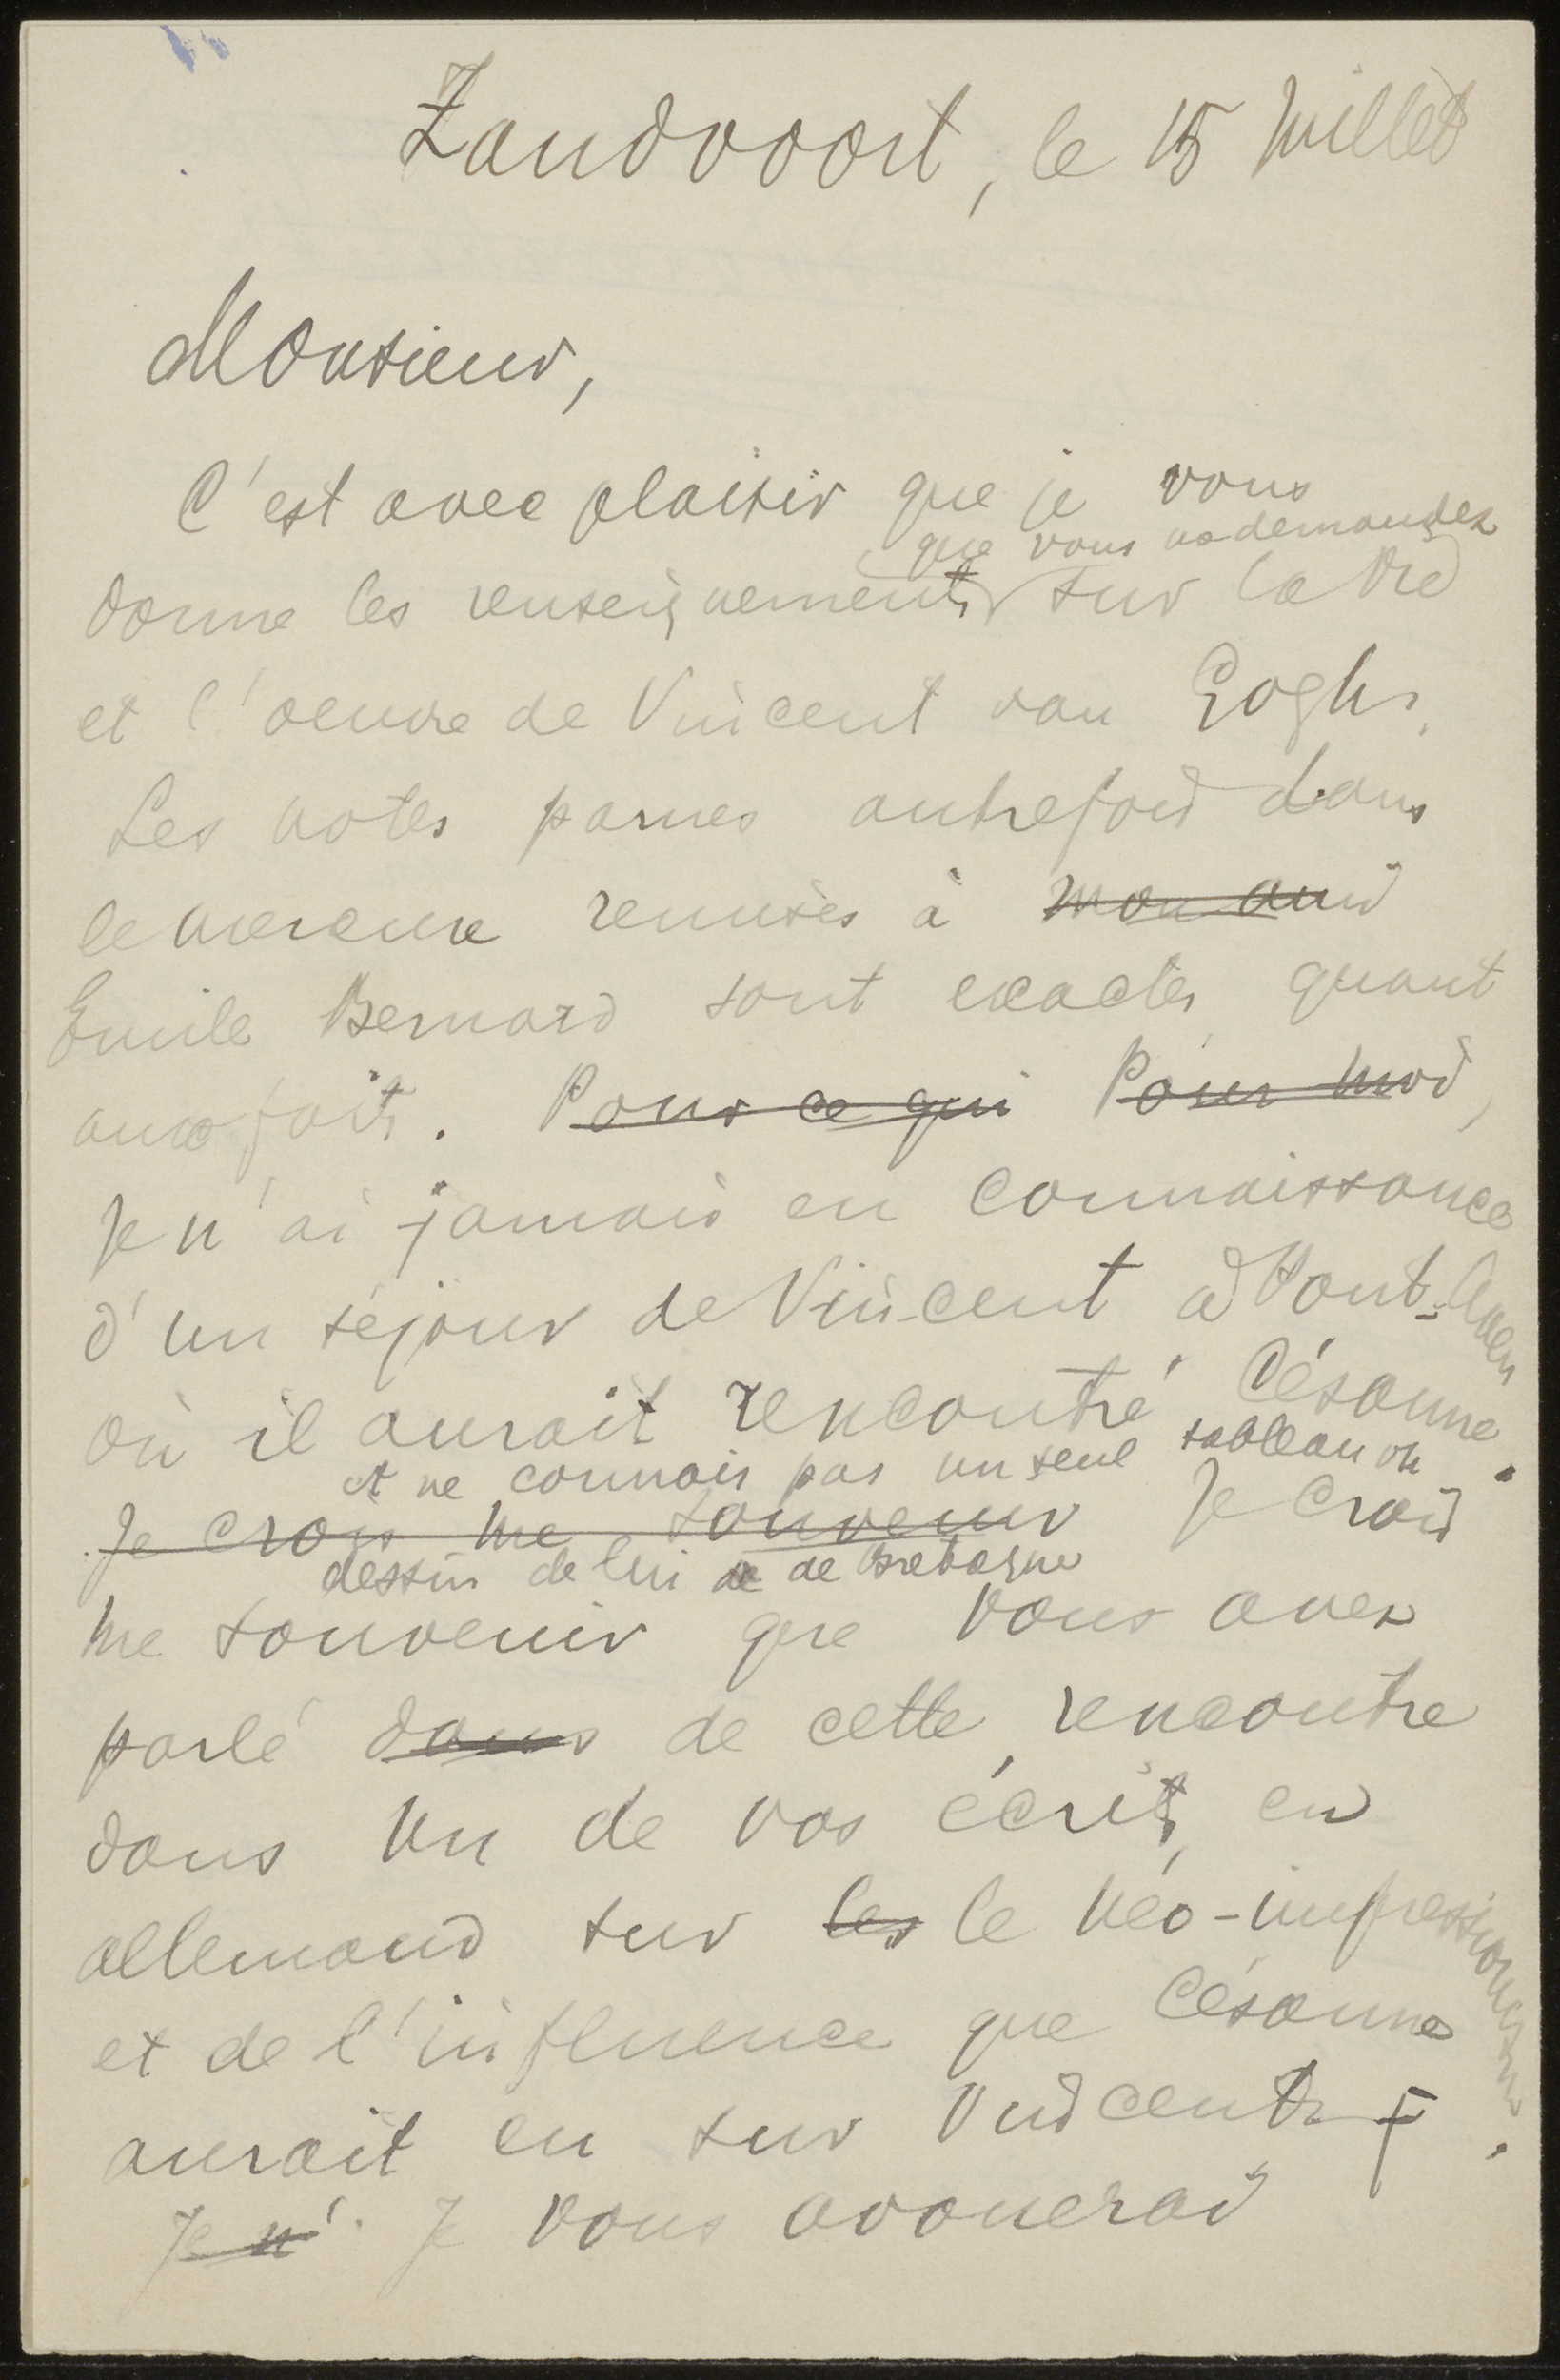 Zandvoort, le 15 Juillet
Monsieur,
C'est avec plaisir que je vous
que vous demandez
donne les renseignements sur la vie
et l'oeuvre de Vincent van Gogh.
Les notes parues autrefois dans
le mercure remises à mon ami
Emile Bernard sont exactes quant
aux faits. Pour ce qui Pour moi,
Je n'ai jamais eu connaissance
d'un séjour de Vincent à Pont-Aven
où il aurait rencontré Césanne.
et ne connais pas un seul tableau ou
Je crois me souvenir Je crois
dessin de lui de Bretagne
me souvenir que vous avez
parlé dans de cette rencontre
dans un de vos écrits en
allemand sur les le néo-impressionisme
et de l'influence que Césanne
aurait eu sur Vincent
Je n' Je vous avouerai